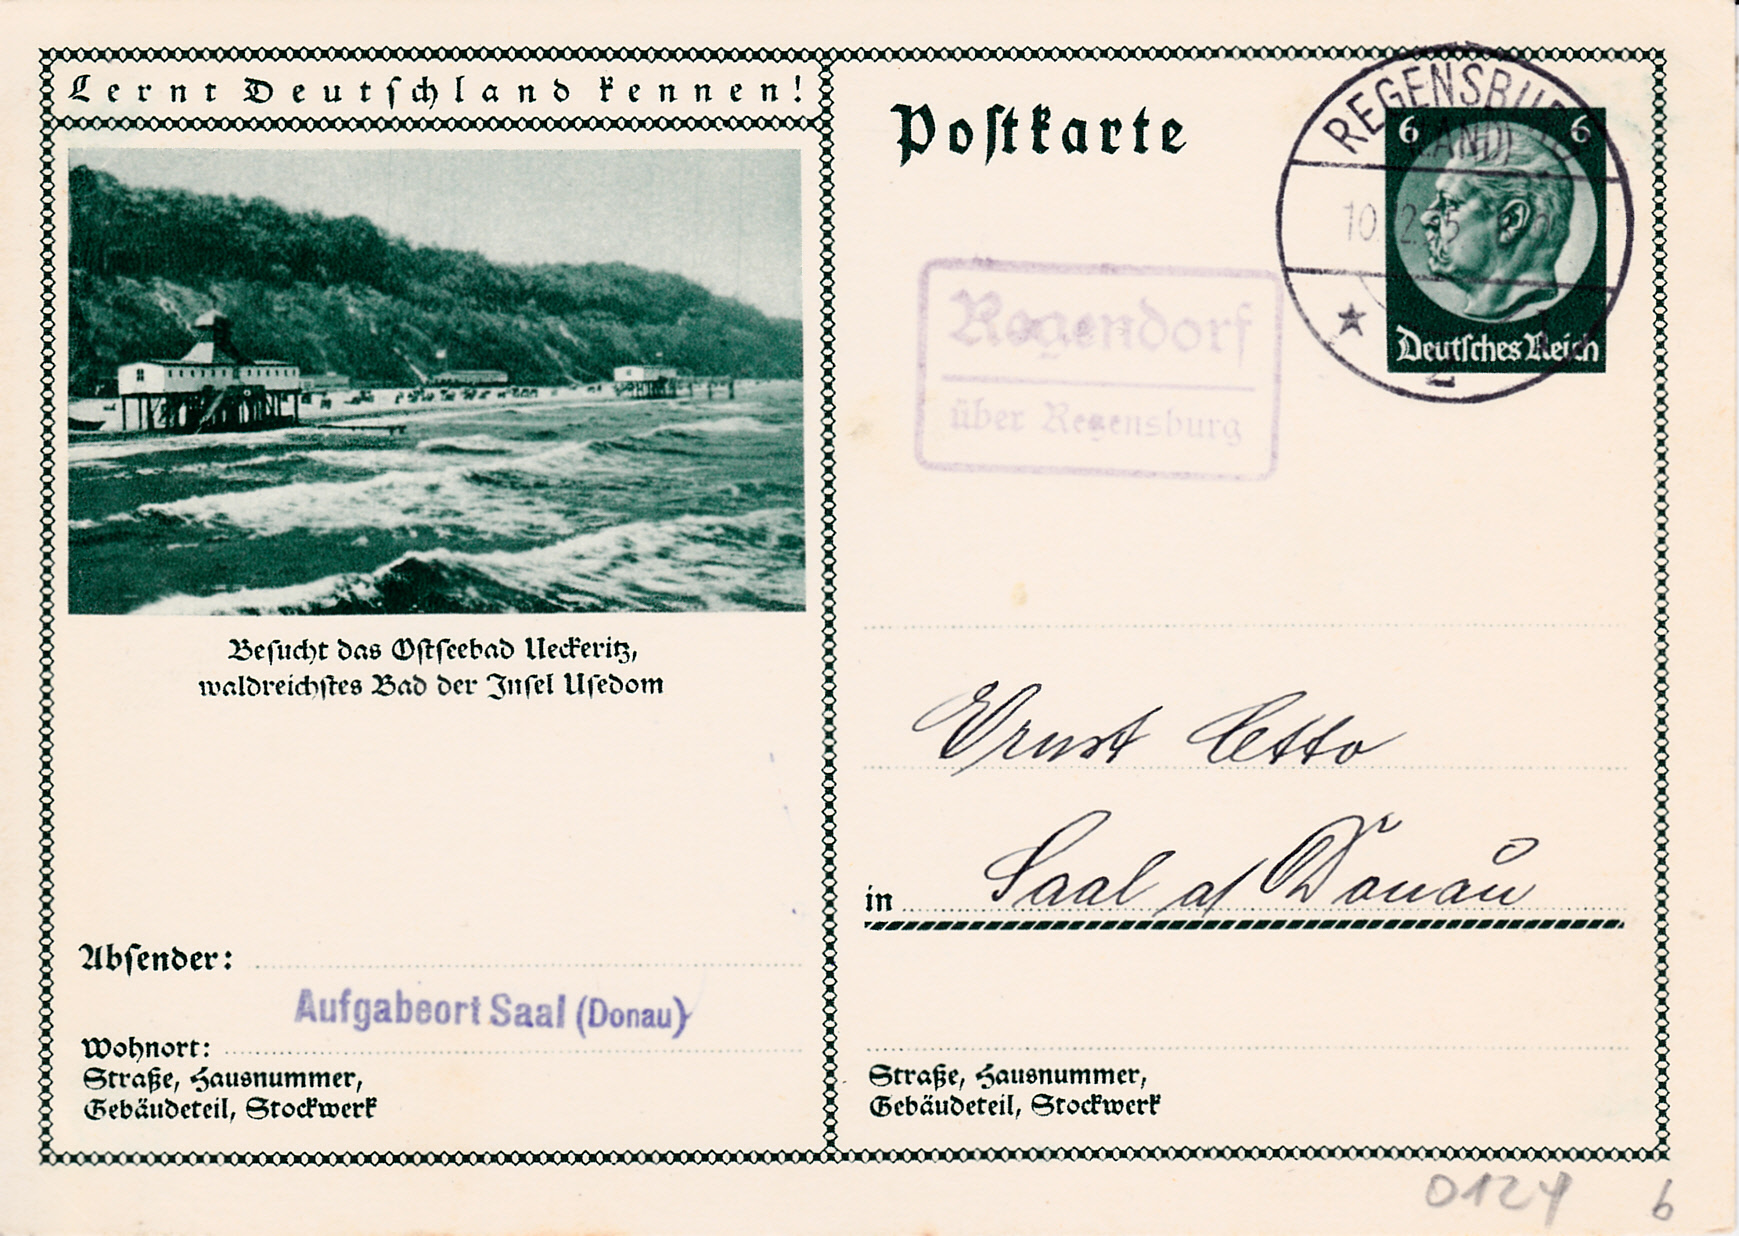 Lernt Deutschland kennen!
Besucht das Ostseebad Ueckeritz,
waldreichstes Bad der Insel Usedom
Absender:
Aufgabeort Saal (Donau)
Wohnort:
Straße, Hausnummer,
Gebäudeteil, Stockwerk
Postkarte
REGENSBURG
(LAND)
10. 2.35
6 6
Deutsches Reich
Regendorf
über Regensburg
Ernst
in Saal a/ Donau
Straße, Hausnummer,
Gebäudeteil, Stockwerk
0124 b